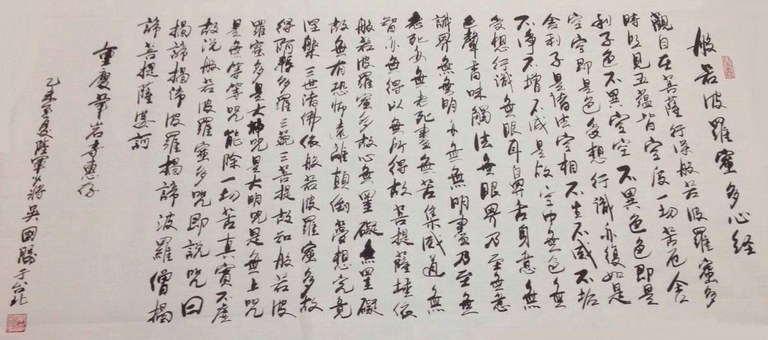 般若波羅蜜多心經
觀自在菩薩行深般若波羅蜜多
時照見五蘊皆空度一切苦厄舍
利子色不異空空不異色色即是
空空即是色受想行識亦復如是
舍利子是諸法空相不生不滅不垢
不淨不增不減是故空中無色無
受想行識無眼耳鼻舌身意無
色聲香味觸法無眼界乃至無意
識界無無明亦無無明盡乃至無
老死亦無老死盡無苦集滅道無
智亦無得以無所得故菩提薩埵依
般若波羅蜜多故心無罣礙無罣礙
故無有恐怖遠離顛倒夢想究竟
涅槃三世諸佛依般若波羅蜜多故
得阿耨多羅三藐三菩提故知般若波
羅蜜多是大神咒是大明咒是無上咒
是無等等咒能除一切苦真實不虛
故說般若波羅蜜多咒即說咒曰
揭諦揭諦波羅揭諦波羅僧揭
諦菩提薩婆訶
重慶華岩寺惠存
乙未夏陸軍將吳國於台北